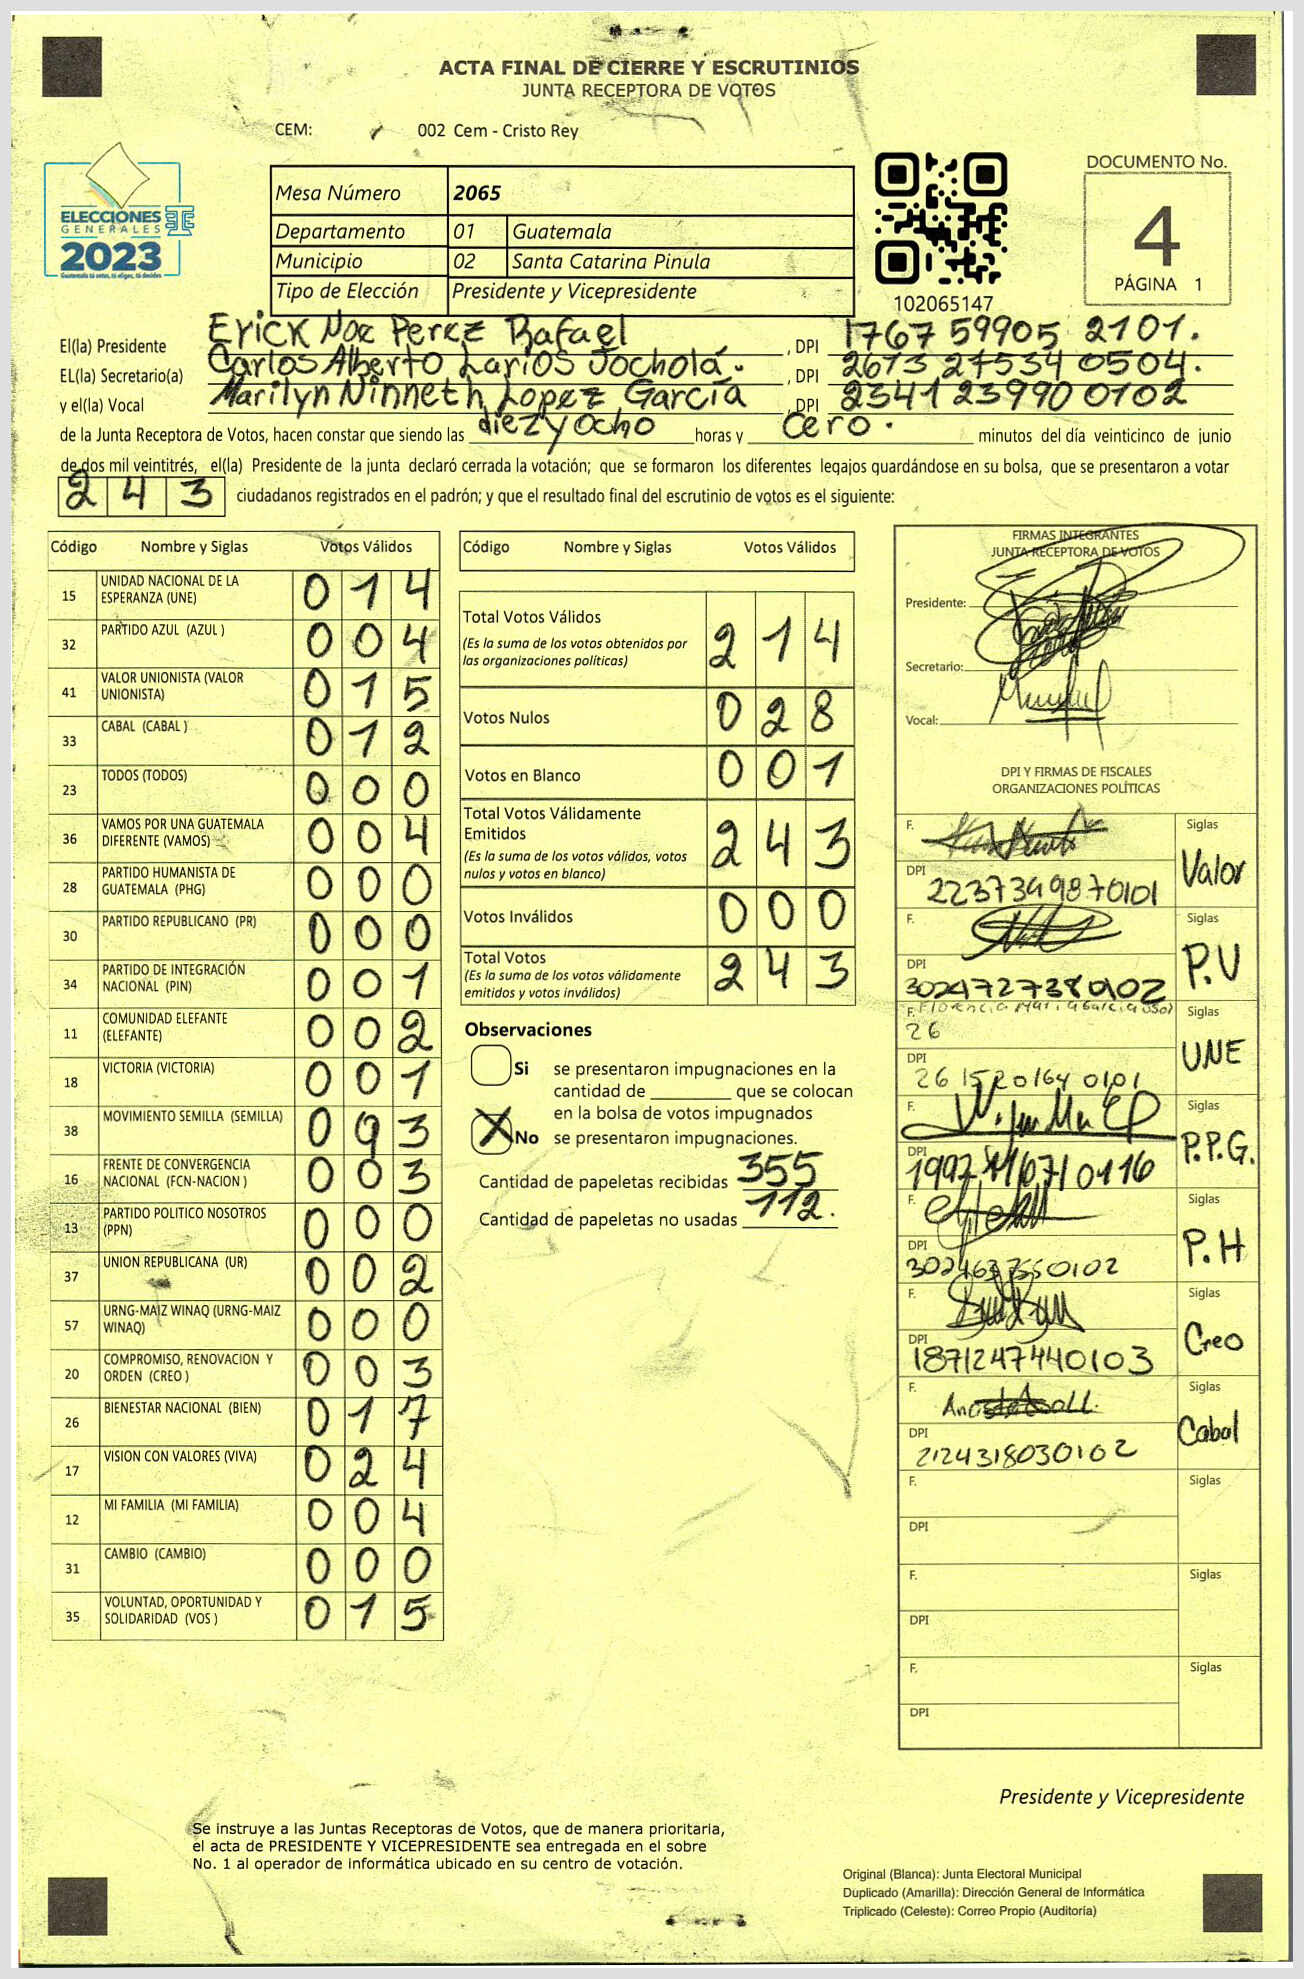 ACTA FINAL DE CIERRE Y ESCRUTINIOS
JUNTA RECEPTORA DE VOTOS
CEM: 002 Cem - Cristo Rey
ELECCIONES
GENERALES
2023
Mesa Número 2065
Departamento 01 Guatemala
Municipio 02 Santa Catarina Pinula
Tipo de Elección Presidente y Vicepresidente
102065147
DOCUMENTO No.
4
PÁGINA 1
El(la) Presidente Erick Noe Perez Rafael , DPI 1767 59905 2101.
EL(la) Secretario(a) Carlos Alberto Larios Jocholá. , DPI 2673 27534 0504.
y el(la) Vocal Marilyn Ninneth Lopez García , DPI 2341 23990 0102
de la Junta Receptora de Votos, hacen constar que siendo las diez y ocho horas y cero. minutos del día veinticinco de junio
de dos mil veintitrés, el(la) Presidente de la junta declaró cerrada la votación; que se formaron los diferentes legajos guardándose en su bolsa, que se presentaron a votar
243 ciudadanos registrados en el padrón; y que el resultado final del escrutinio de votos es el siguiente:
Código Nombre y Siglas Votos Válidos
15 UNIDAD NACIONAL DE LA ESPERANZA (UNE) 014
32 PARTIDO AZUL (AZUL ) 004
41 VALOR UNIONISTA (VALOR UNIONISTA) 015
33 CABAL (CABAL ) 012
23 TODOS (TODOS) 000
36 VAMOS POR UNA GUATEMALA DIFERENTE (VAMOS) 004
28 PARTIDO HUMANISTA DE GUATEMALA (PHG) 000
30 PARTIDO REPUBLICANO (PR) 000
34 PARTIDO DE INTEGRACIÓN NACIONAL (PIN) 001
11 COMUNIDAD ELEFANTE (ELEFANTE) 002
18 VICTORIA (VICTORIA) 001
38 MOVIMIENTO SEMILLA (SEMILLA) 093
16 FRENTE DE CONVERGENCIA NACIONAL (FCN-NACION ) 003
13 PARTIDO POLITICO NOSOTROS (PPN) 000
37 UNION REPUBLICANA (UR) 002
57 URNG-MAIZ WINAQ (URNG-MAIZ WINAQ) 000
20 COMPROMISO, RENOVACION Y ORDEN (CREO ) 003
26 BIENESTAR NACIONAL (BIEN) 017
17 VISION CON VALORES (VIVA) 024
12 MI FAMILIA (MI FAMILIA) 004
31 CAMBIO (CAMBIO) 000
35 VOLUNTAD, OPORTUNIDAD Y SOLIDARIDAD (VOS ) 015
Código Nombre y Siglas Votos Válidos
Total Votos Válidos 214
(Es la suma de los votos obtenidos por
las organizaciones políticas)
Votos Nulos 028
Votos en Blanco 001
Total Votos Válidamente
Emitidos 243
(Es la suma de los votos válidos, votos
nulos y votos en blanco)
Votos Inválidos 000
Total Votos 243
(Es la suma de los votos válidamente
emitidos y votos inválidos)
Observaciones
Si se presentaron impugnaciones en la
cantidad de ________ que se colocan
en la bolsa de votos impugnados
X No se presentaron impugnaciones.
Cantidad de papeletas recibidas 355
Cantidad de papeletas no usadas 112.
FIRMAS INTEGRANTES
JUNTA RECEPTORA DE VOTOS
Presidente:
Secretario:
Vocal:
DPI Y FIRMAS DE FISCALES
ORGANIZACIONES POLÍTICAS
F. Siglas
DPI 2237349870101 Valor
F. Siglas
DPI 3024727380102 P.V
F. Siglas
26
DPI 26 1520164 0101 UNE
F. Siglas
DPI P.P.G.
F. Siglas
DPI 3024637550102 P.H
F. Siglas
DPI 1871247440103 Creo
F. Siglas
DPI 2124318030102 Cabal
F. Siglas
DPI
F. Siglas
DPI
F. Siglas
DPI
Presidente y Vicepresidente
Se instruye a las Juntas Receptoras de Votos, que de manera prioritaria,
el acta de PRESIDENTE Y VICEPRESIDENTE sea entregada en el sobre
No. 1 al operador de informática ubicado en su centro de votación.
Original (Blanca): Junta Electoral Municipal
Duplicado (Amarilla): Dirección General de Informática
Triplicado (Celeste): Correo Propio (Auditoría)